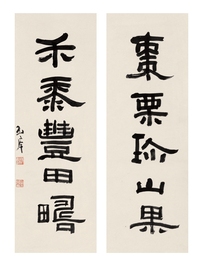 棗栗珍山果
禾黍豐田疇